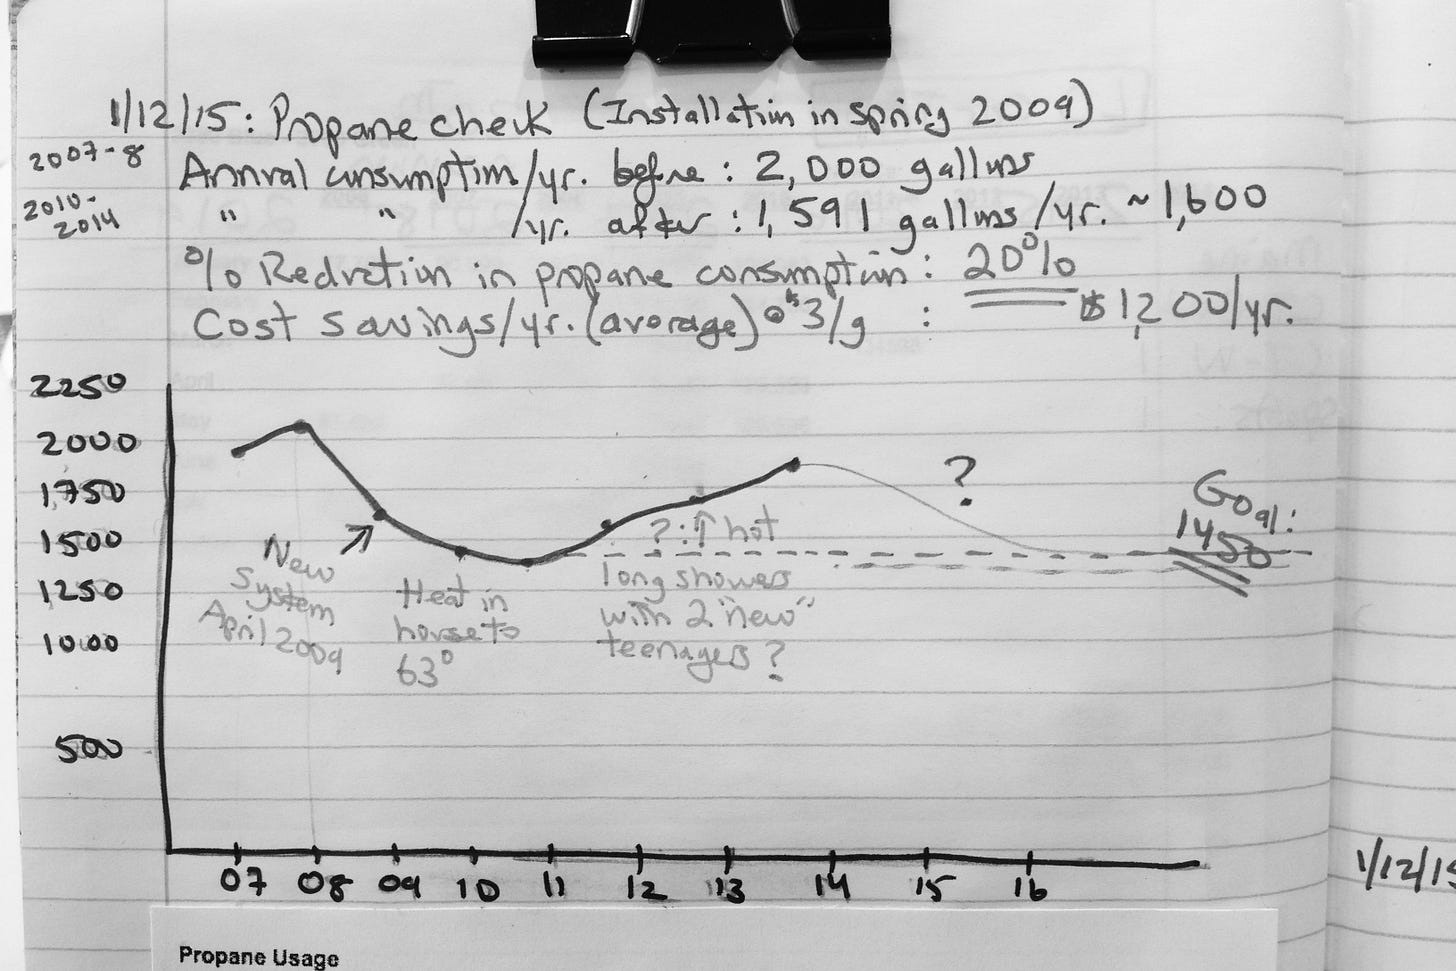 1/12/15: Propane check (Installation in spring 2009)
2007-8 Annual consumption/yr. before: 2,000 gallons
2010-2014 " " /yr. after: 1,591 gallons/yr. ~1,600
% Reduction in propane consumption: 20%
Cost savings/yr. (average) @ $3/g : $1,200/yr.
2250
2000
1,750
1500
1250
1000
500
New
System
April 2009
Heat in
house to
63°
?: ↑ hot
long showers
with 2 "new"
teenagers?
?
Goal:
1450
07 08 09 10 11 12 13 14 15 16
1/12/15
Propane Usage